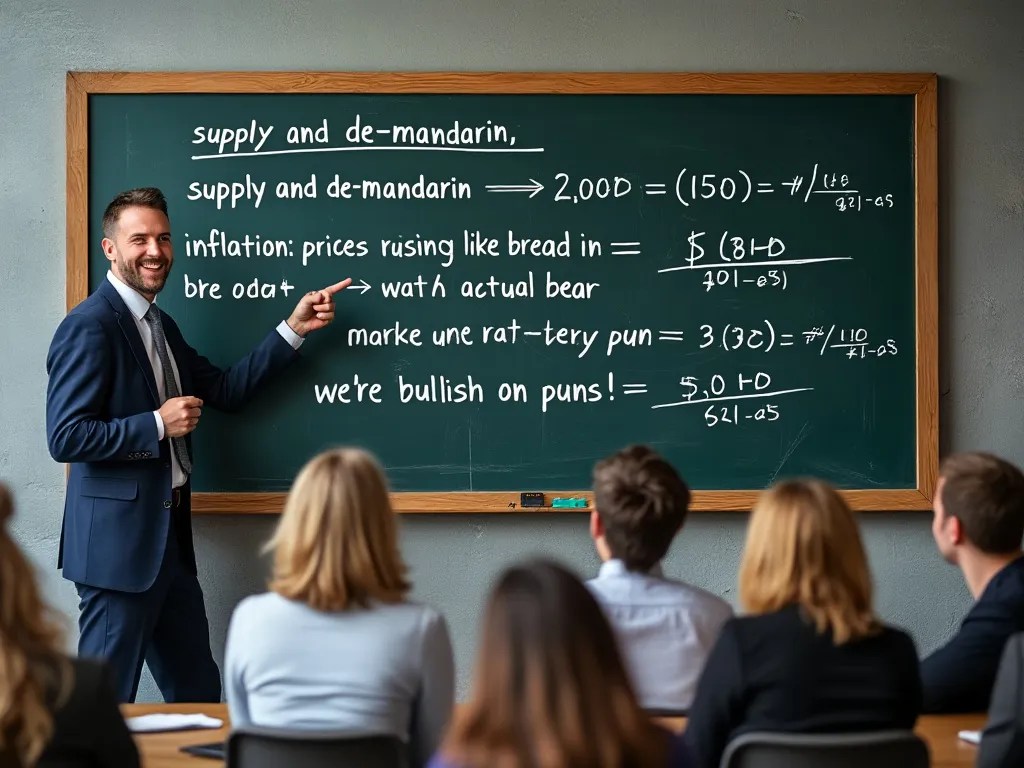 supply and de-mandarin,
supply and de-mandarin → 2,000 = (150) =
inflation: prices rusing like bread in = $ (81-0
bre odat → wath actual bear
marke une rat-tery pun = 3.(3c) =
we're bullish on puns! = 5,0 1-0
621-a5